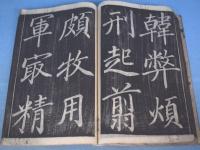 韓弊煩
刑起翦
頗牧用
軍最精